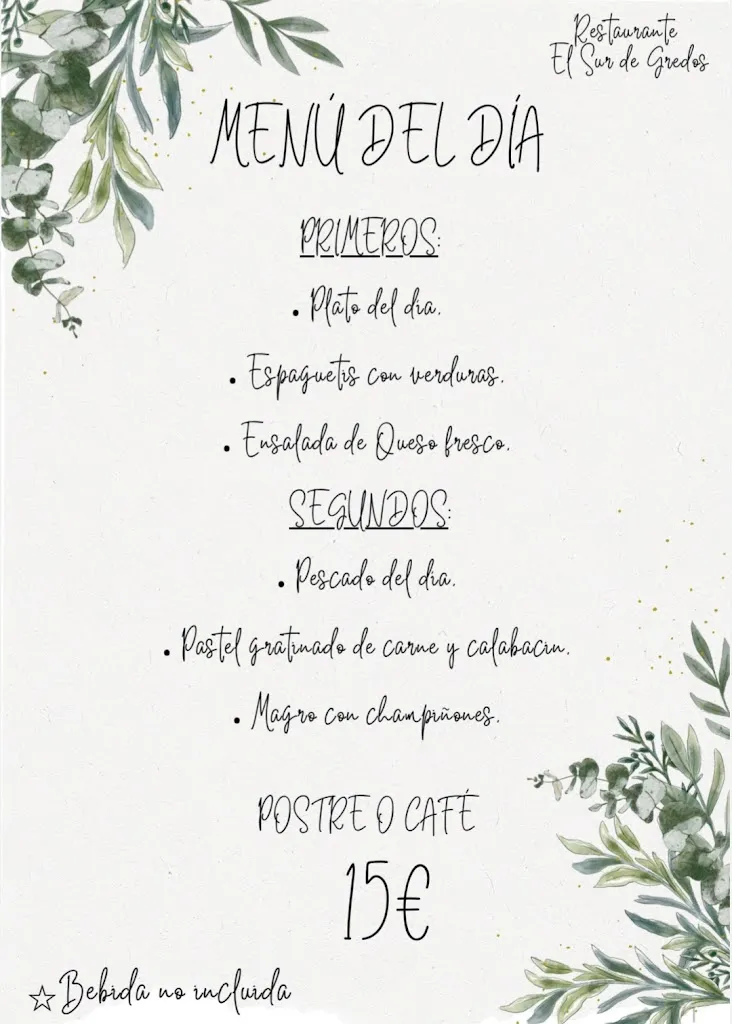 Restaurante
El Sur de Gredos
MENÚ DEL DÍA
PRIMEROS:
• Plato del dia.
• Espaguetis con verduras.
• Ensalada de Queso fresco.
SEGUNDOS:
• Pescado del dia.
• Pastel gratinado de carne y calabacin.
• Magro con champiñones.
POSTRE O CAFÉ
15€
☆ Bebida no incluida